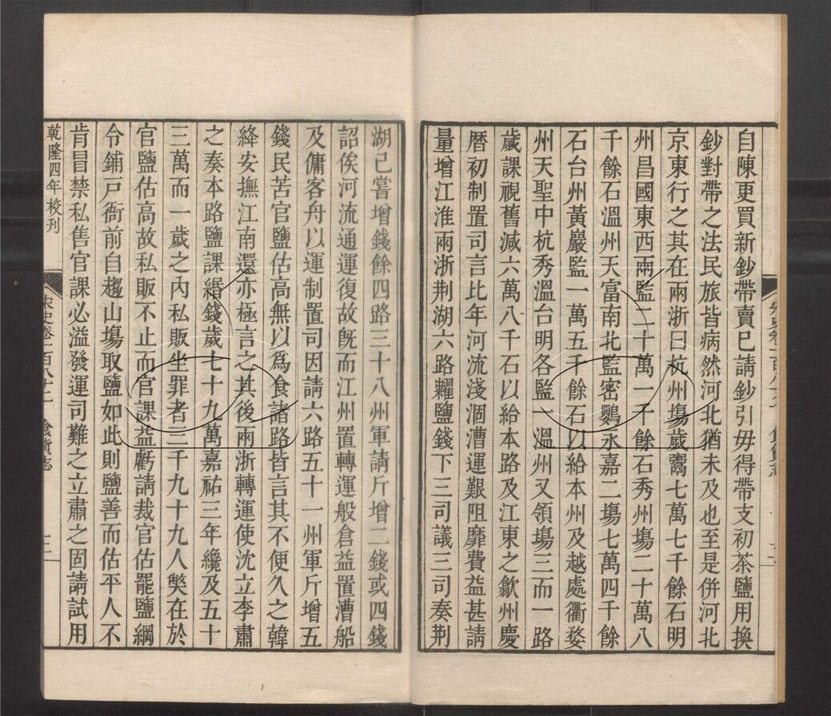 自陳更買新鈔帶賣已請鈔引毋得帶支初茶鹽用換
鈔對帶之法民旅皆病然河北猶未及也至是併河北
京東行之其在兩浙曰杭州場歲鬻七萬七千餘石明
州昌國東西兩監二十萬一千餘石秀州場二十萬八
千餘石溫州天富南北監密鸚永嘉二場七萬四千餘
石台州黃巖監一萬五千餘石以給本州及越處衢婺
州天聖中杭秀溫台明各監一溫州又領場三而一路
歲課視舊減六萬八千石以給本路及江東之歙州慶
曆初制置司言比年河流淺涸漕運艱阻靡費益甚請
量增江淮兩浙荆湖六路糶鹽錢下三司議三司奏荆
湖已嘗增錢餘四路三十八州軍請斤增二錢或四錢
詔俟河流通運復故旣而江州置轉運般倉益置漕船
及傭客舟以運制置司因請六路五十一州軍斤增五
錢民苦官鹽估高無以爲食諸路皆言其不便久之韓
絳安撫江南還亦極言之其後兩浙轉運使沈立李肅
之奏本路鹽課緡錢歲七十九萬嘉祐三年纔及五十
三萬而一歲之內私販坐罪者三千九十九人獘在於
官鹽估高故私販不止而官課益虧請裁官估罷鹽綱
令鋪戸衙前自趨山場取鹽如此則鹽善而估平人不
肯冒禁私售官課必溢發運司難之立肅之固請試用
乾隆四年校刊
宋史卷一百八十二 食貨志